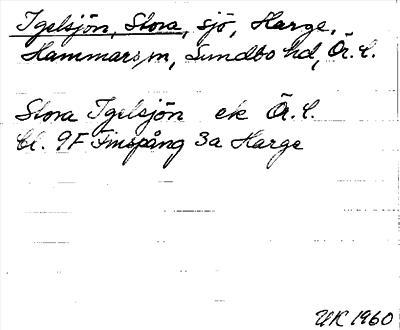 Igelsjön, Stora, sjö, Harge,
Hammars sn, Sundbo hd, Ör. l.
Stora Igelsjön ek Ör. l.
bl. 9F Finspång 3a Harge
UK 1960